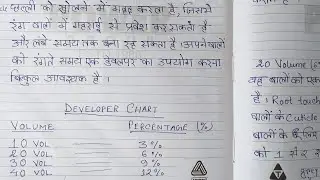 प्रणाली को खोलने में मदद करता है, जिससे
रंग बालों में गहराई से प्रवेश कर सकता है
और लंबे समय तक बना रह सकता है। अपने बालों
को रंगते समय एक डेवलपर का उपयोग करना
बिल्कुल आवश्यक है।
DEVELOPER CHART
VOLUME PERCENTAGE (%)
10 VOL — 3%
20 VOL — 6%
30 VOL — 9%
40 VOL — 12%
20 Volume
यह बालों को एक
है। Root touch
बालों के Cuticle
बालों के लिए
को 1 से 2